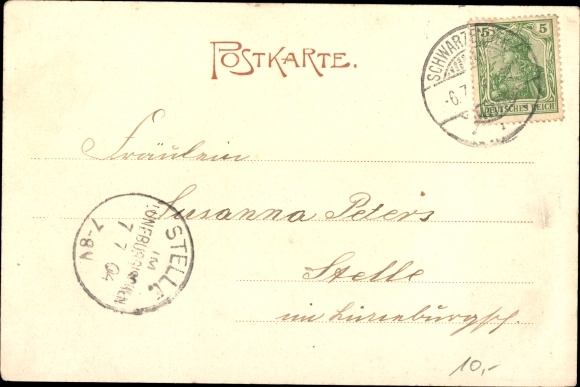 POSTKARTE.
5 5
DEUTSCHES REICH
SCHWARZE
-6.7
Fräulein
Susanna Peters
Stelle
im Lüneburgsch.
STELLE
IM
7 7 04
7-8V
10,-